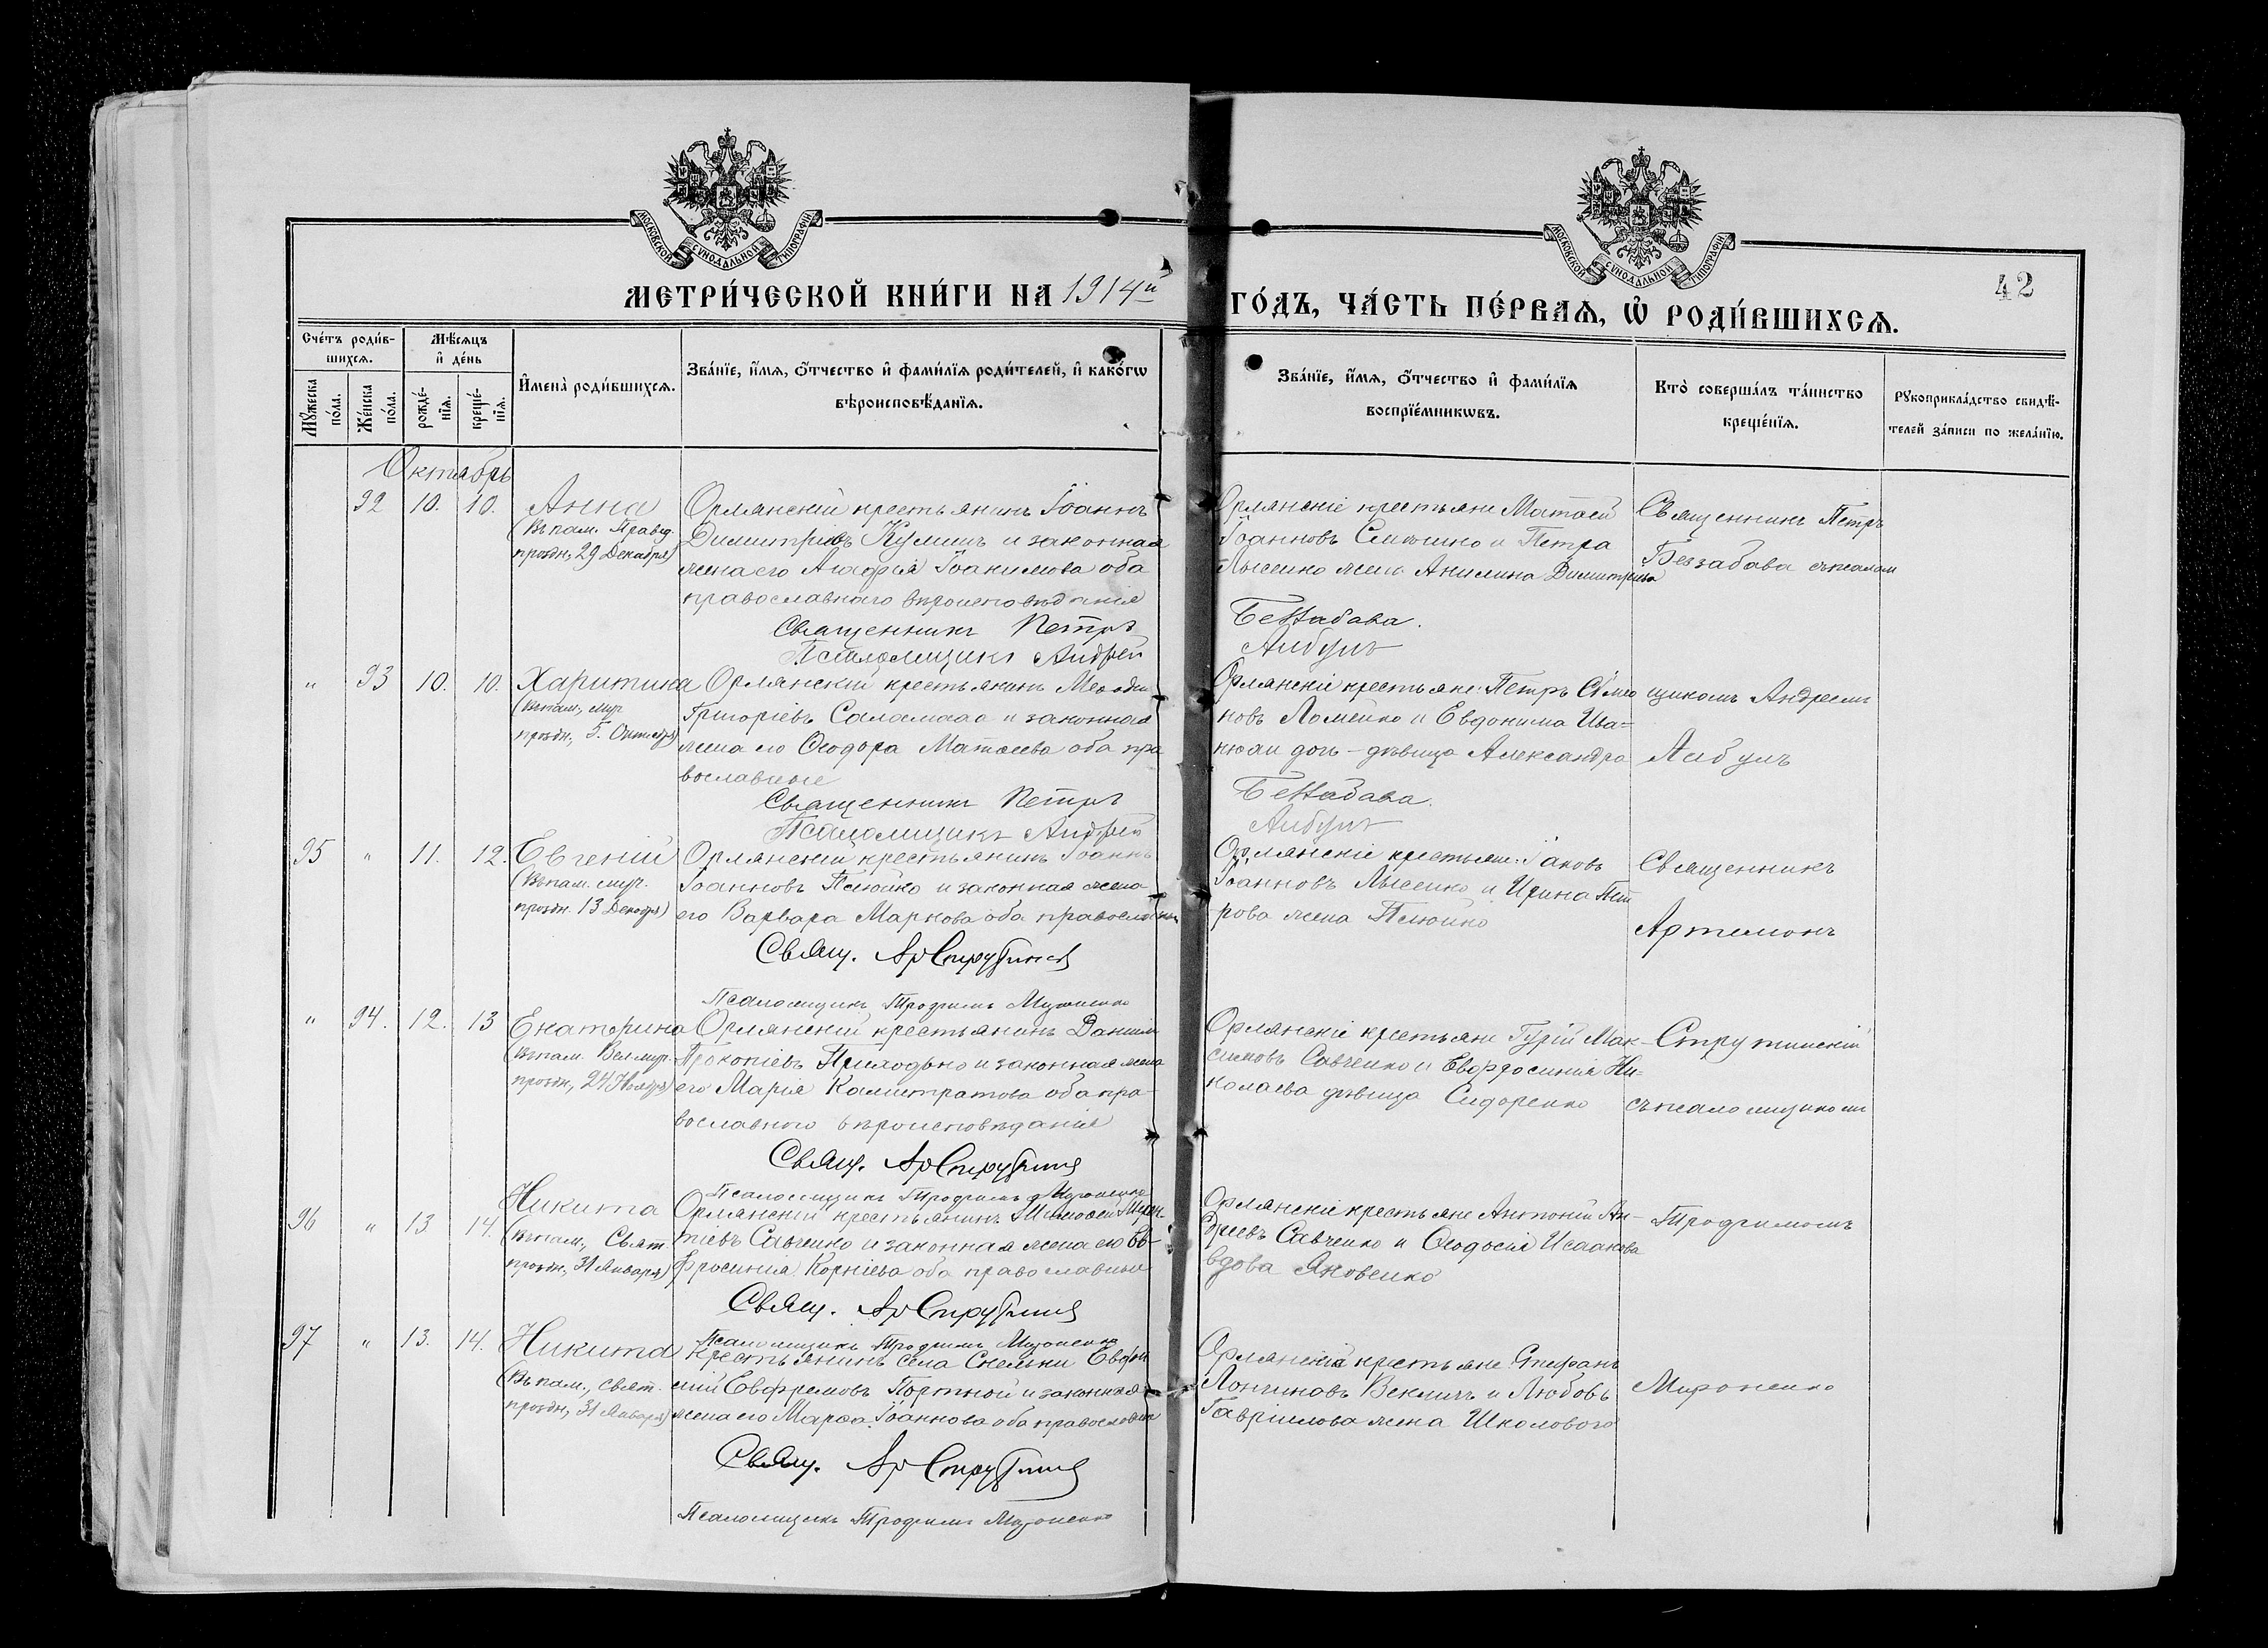 МОСКОВСКОЙ СѴНОДАЛЬНОЙ ТИПОГРАФІИ
МОСКОВСКОЙ СѴНОДАЛЬНОЙ ТИПОГРАФІИ
42
МЕТРИ́ЧЕСКОЙ КНИ́ГИ НА 1914й
ГО́ДЪ, ЧА́СТЬ ПЕ́РВАѦ, Ѡ҆ РОДИ́ВШИХСѦ.
Сче́тъ роди́в-
шихсѧ.
Мѣ́сѧцъ
и҆ де́нь
Мꙋ́жеска
по́ла.
Же́нска
по́ла.
рожде́-
нїѧ.
креще́-
нїѧ.
И҆мена̀ роди́вшихсѧ.
Зва́нїе, и҆́мѧ, ѻ҆́тчество и҆ фами́лїѧ роди́телей, и҆ како́гѡ
вѣроисповѣ́данїѧ.
Зва́нїе, и҆́мѧ, ѻ҆́тчество и҆ фами́лїѧ
воспрїе́мникѡвъ.
Кто̀ соверша́лъ та́инство
креще́нїѧ.
Рꙋкоприкла́дство свидѣ́-
телей за́писи по жела́нїю.
Октябрь
92 10. 10. Анна
(Въ пам. Правед.
праздн, 29 Декабря)
Орлянскій крестьянинъ Іоаннъ
Димитріевъ Кулишъ и законная
жена его Агафія Іоакимова оба
православнаго вѣроисповѣданія
Священникъ Петръ
Псаломщикъ Андрей
Орлянскіе крестьяне Матѳей
Іоанновъ Слюсенко и Петра
Лысенко жена Акилина Димитріева
Беззабава.
Либуль
Священникъ Петръ
Беззабава съ псалом
" 93 10. 10. Харитина
(въ пам., муч
праздн, 5. Октября)
Орлянскій крестьянинъ Меѳодій
Григоріевъ Саламаха и законная
жена его Ѳеодора Матѳеева оба пра
вославные
Священникъ Петръ
Псаломщикъ Андрей
Орлянскіе крестьяне: Петръ Симео
новъ Ломейко и Евдокима Ива-
нюти дочь - дѣвица Александра
Беззабава.
Либуль
щикомъ Андреемъ
Либуль
95 " 11. 12. Евгеній
(Въ пам. муч.
праздн. 13 Декабря)
Орлянскій крестьянинъ Іоаннъ
Іоанновъ Плюйко и законная жена
его Варвара Маркова оба православные
Свящ. Ар Струтинск
Псаломщикъ Трофимъ Мироненко
Орлянскіе крестьяне: Іаковъ
Іоанновъ Лысенко и Ирина Пет
рова жена Плюйко
Священникъ
Артемонъ
" 94. 12. 13 Екатерина
(въ пам. Вел муч.
праздн, 24 Ноября)
Орлянскій крестьянинъ Даніилъ
Прокопіевъ Приходько и законная жена
его Марія Калистратова оба пра-
вославнаго вѣроисповѣданія
Свящ. Ар Струтинск
Псаломщикъ Трофимъ Мироненко
Орлянскіе крестьяне Гурій Мак-
симовъ Савченко и Евфросинія Ни-
колаева дѣвица Сидоренко
Струтинскій
съ псаломщикомъ
96 " 13 14. Никита
(въ пам., Свят.
праздн, 31 Января)
Орлянскій крестьянинъ Тимоѳей
тіевъ Савченко и законная жена его Ев-
фросинія Корніева оба православные
Свящ. Ар Струтинск
Псаломщикъ Трофимъ Мироненко
Орлянскіе крестьяне Антоній Ан-
дреевъ Савченко и Ѳеодосія Исаакова
вдова Яновенко
Трофимомъ
97 " 13. 14. Никита
(Въ пам., свят.
праздн, 31 Января)
Крестьянинъ села Скельки Евфи
мій Евфремовъ Портной и законная
жена его Марѳа Іоаннова оба православные
Свящ. Ар Струтинск
Псаломщикъ Трофимъ Мироненко
Орлянскіе крестьяне Стефанъ
Логиновъ Веклич и Любовь
Гавріилова жена Школового
Мироненко